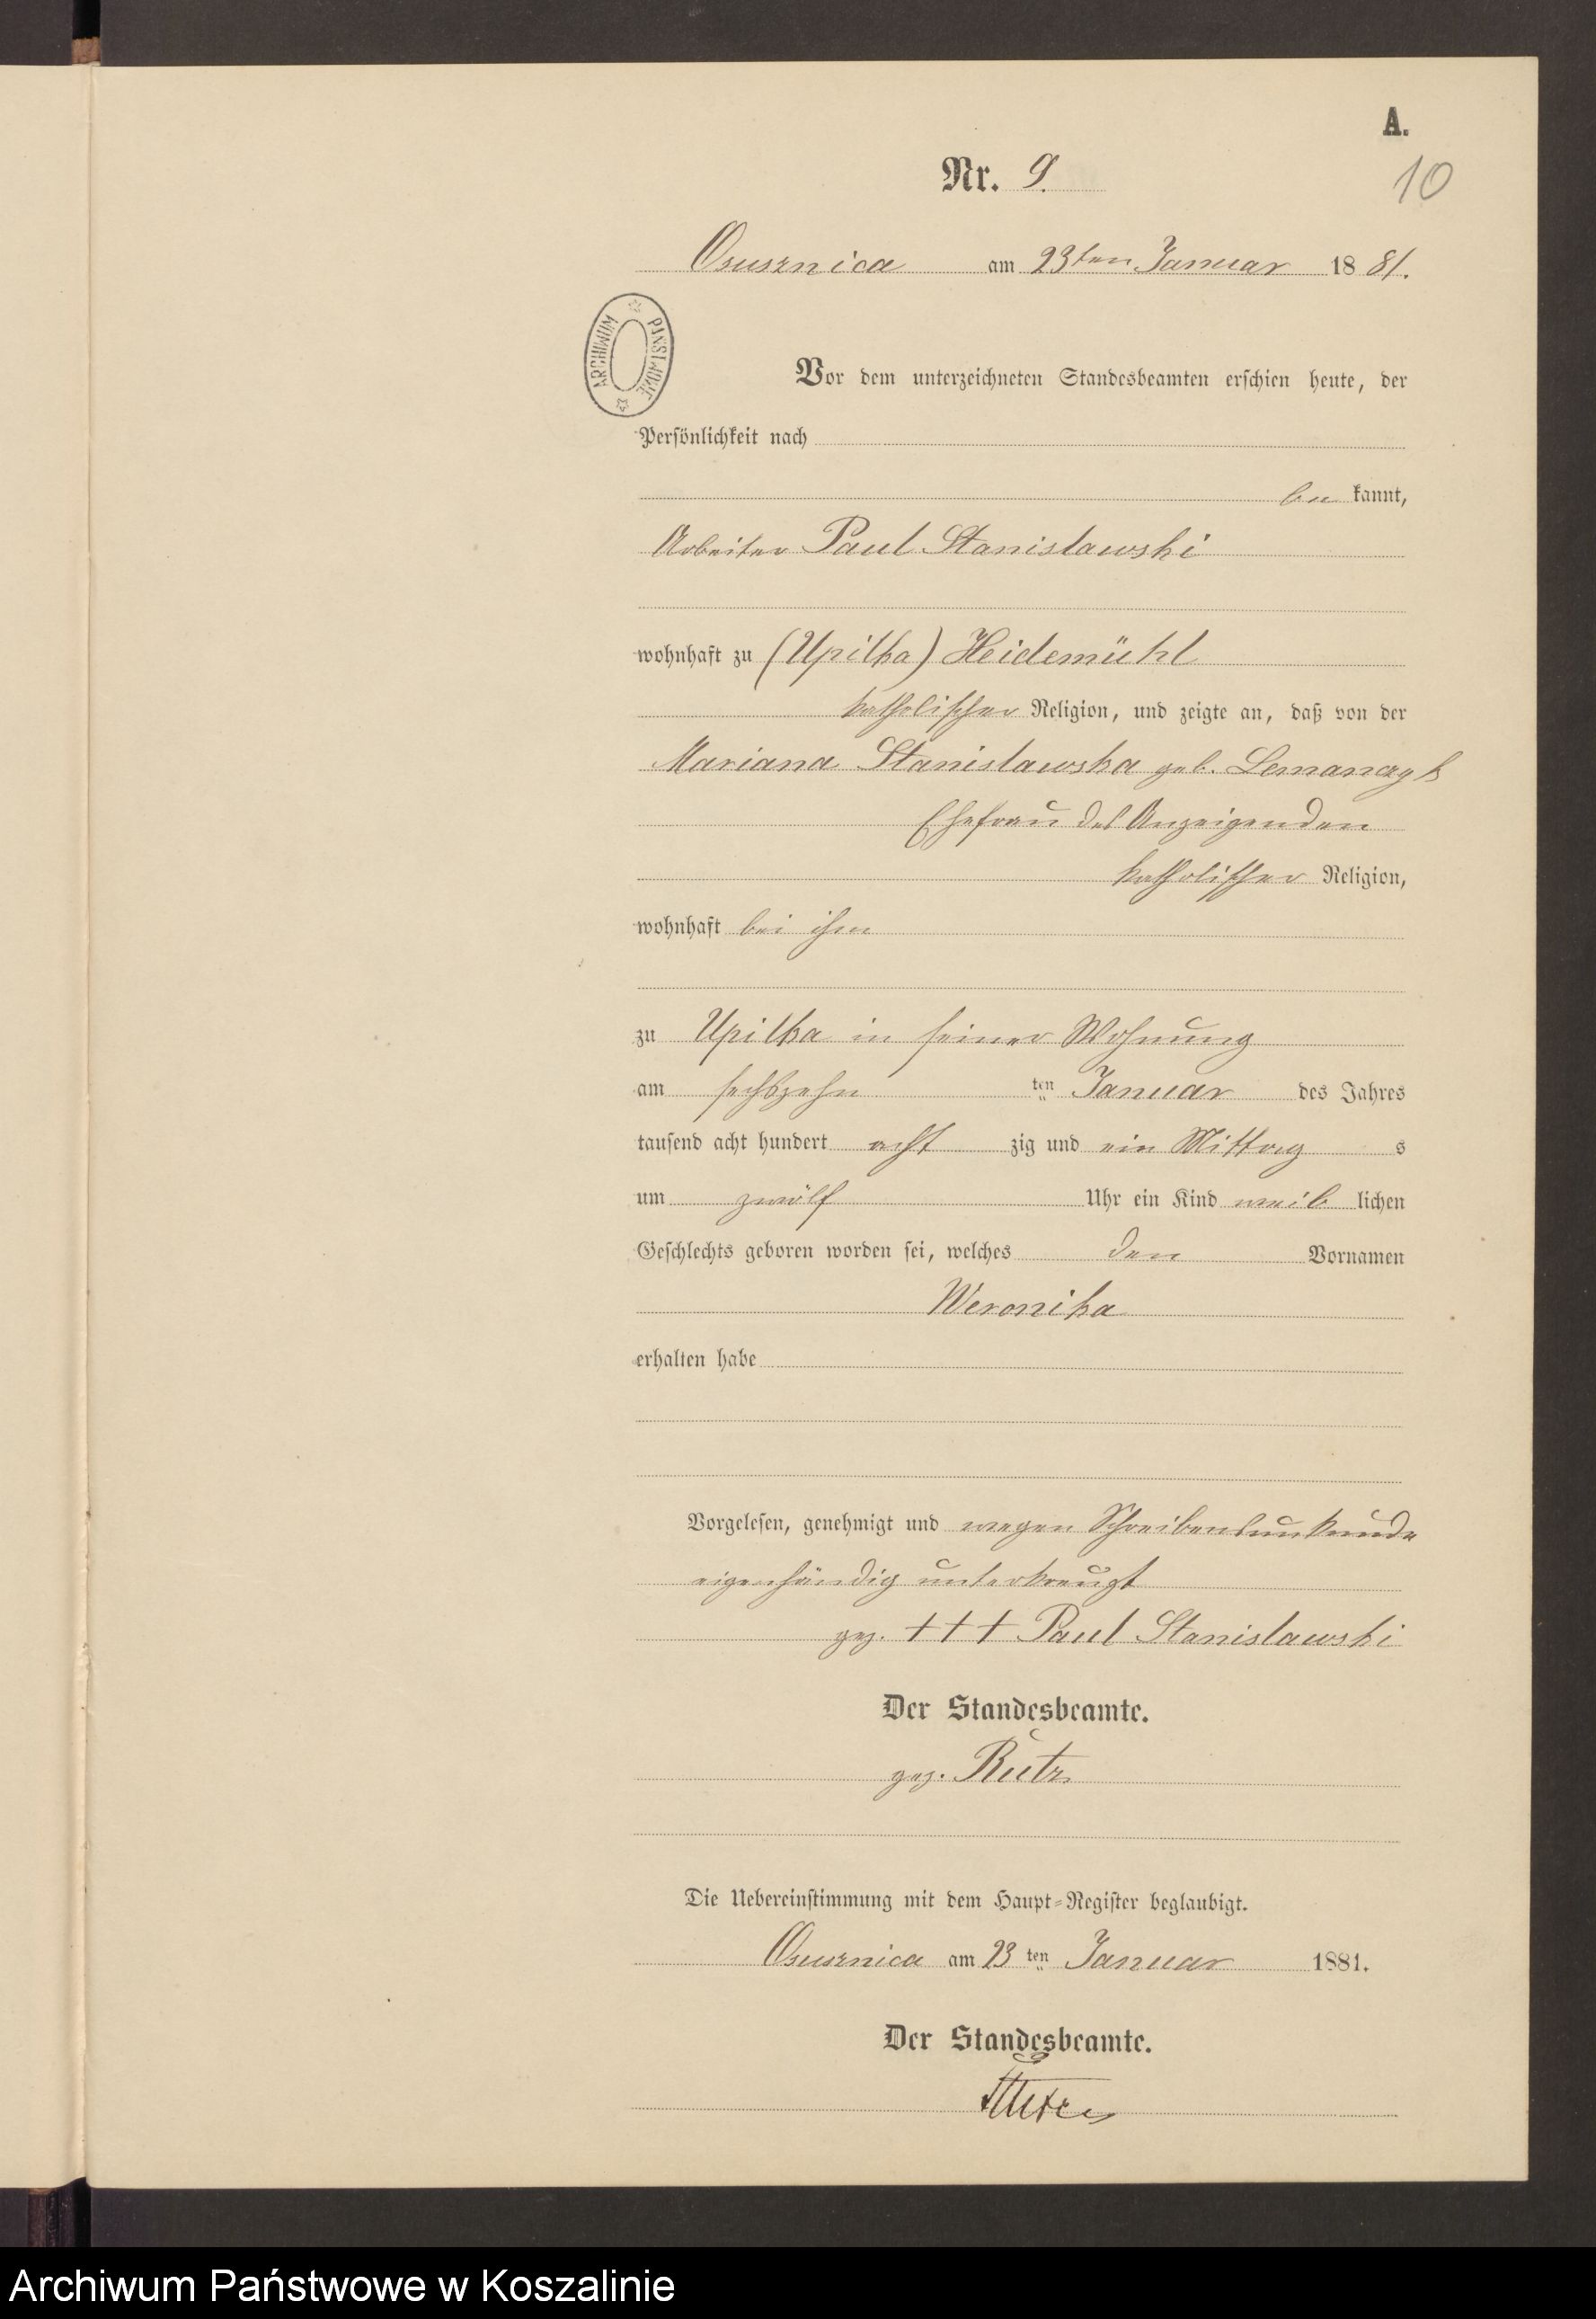 A.
Nr. 9.
10
Osusznica am 23ten Januar 1881.
ARCHIWUM PAŃSTWOWE
Vor dem unterzeichneten Standesbeamten erschien heute, der
Persönlichkeit nach
be kannt,
Arbeiter Paul Stanislawski
wohnhaft zu (Upilka) Heidemühl
katholischer Religion, und zeigte an, daß von der
Mariana Stanislawska geb. Lemanczyk
Ehefrau des Anzeigenden
katholischer Religion,
wohnhaft bei ihm
zu Upilka in seiner Wohnung
am sechszehn ten Januar des Jahres
tausend acht hundert acht zig und ein Mittag s
um zwölf Uhr ein Kind weib lichen
Geschlechts geboren worden sei, welches den Vornamen
Weronika
erhalten habe
Vorgelesen, genehmigt und wegen Schreibensunkunde
eigenhändig unterkreuzt
gez. +++ Paul Stanislawski
Der Standesbeamte.
gez. Rutz
Die Uebereinstimmung mit dem Haupt-Register beglaubigt.
Osusznica am 23 ten Januar 1881.
Der Standesbeamte.
Archiwum Państwowe w Koszalinie